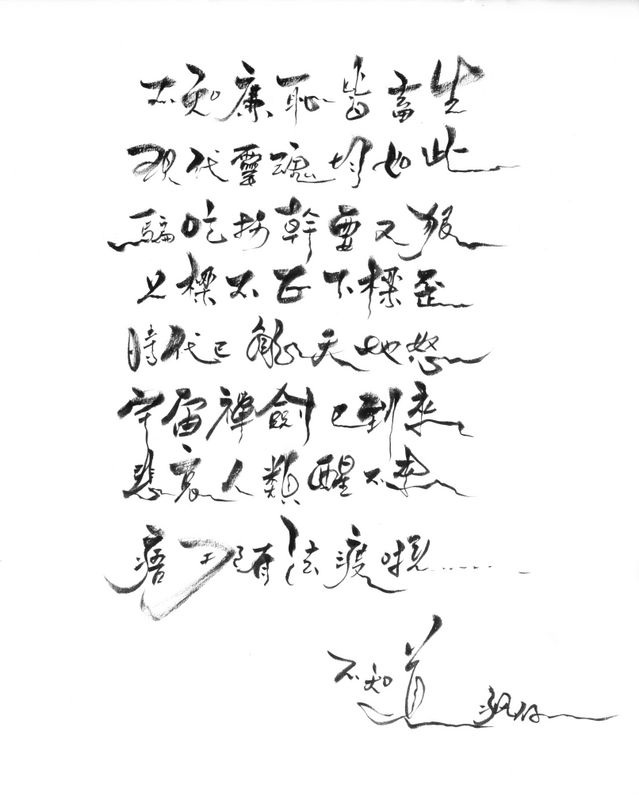 不知廉恥皆畜生
現代靈魂均如此
騙吃 幹耍又狠
上樑不正下樑歪
時代已 天地怒
宇宙禪劍已到來
悲哀人類醒不來
法渡啦......
不知道